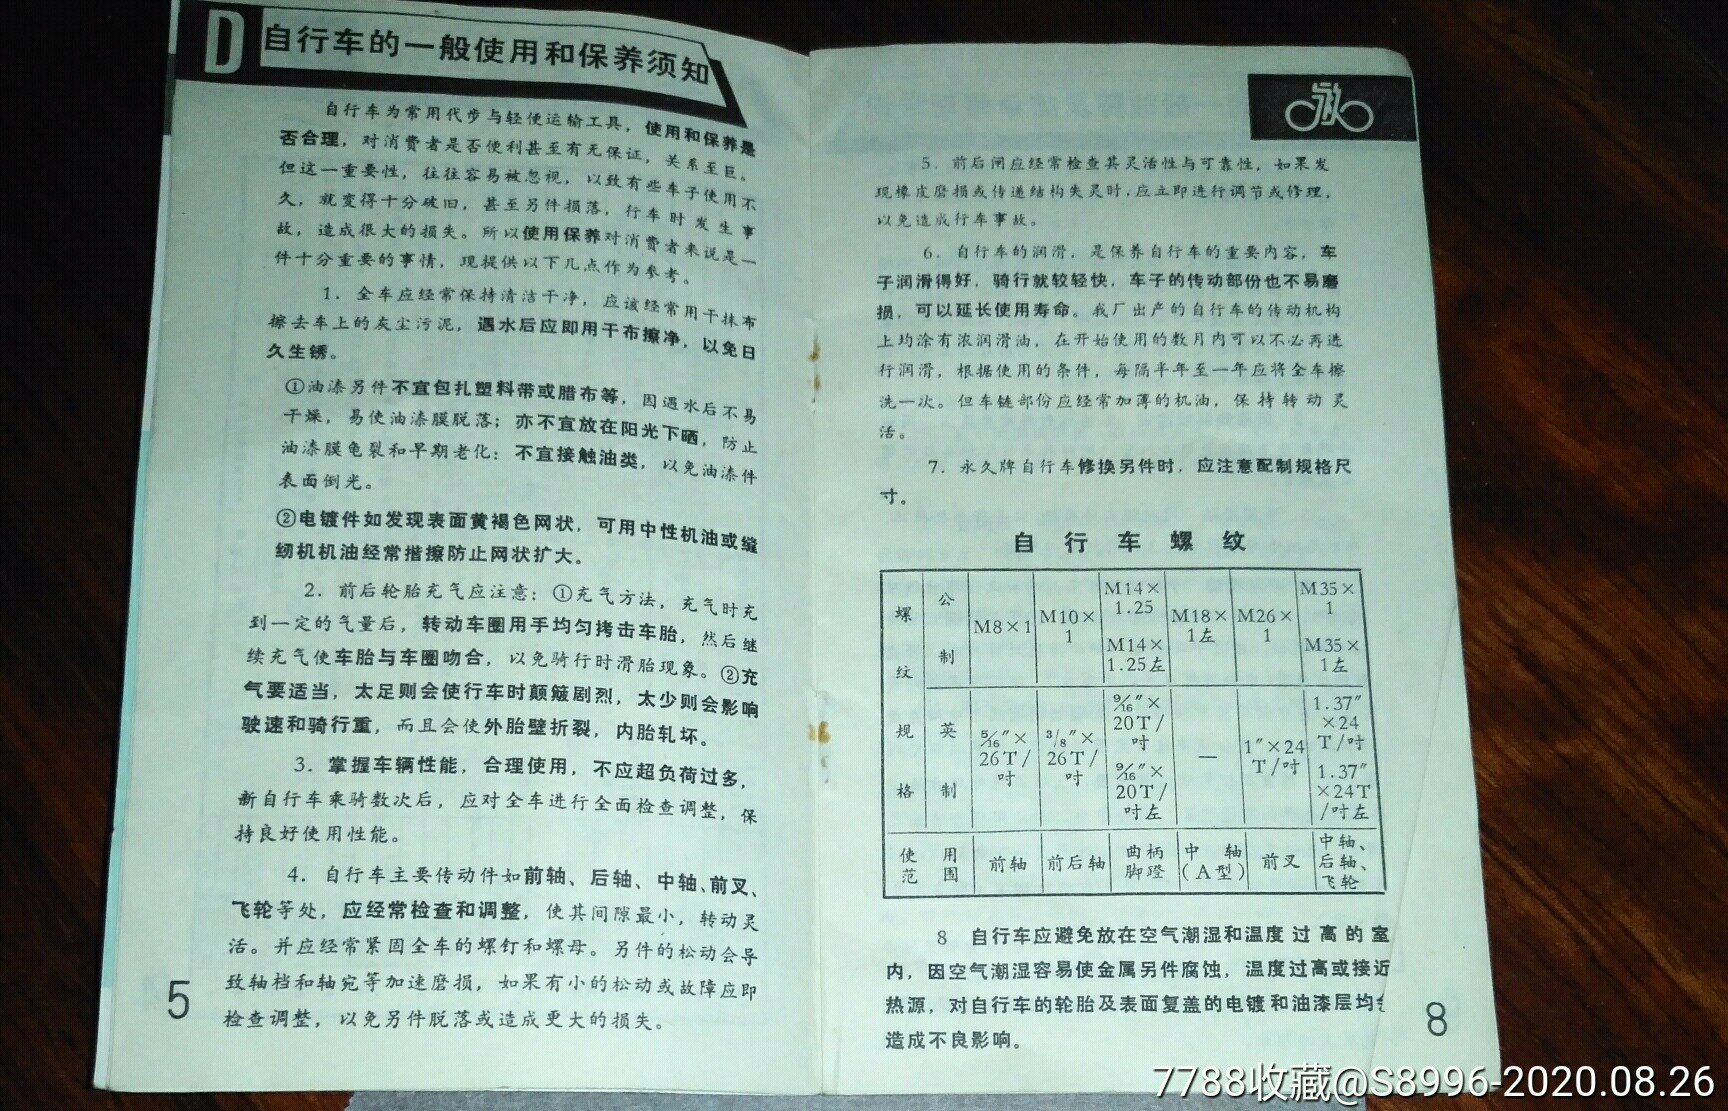 D 自行车的一般使用和保养须知
自行车为常用代步与轻便运输工具，使用和保养是
否合理，对消费者是否便利甚至有无保证，关系至巨。
但这一重要性，往往容易被忽视，以致有些车子使用不
久，就变得十分破旧，甚至另件损落，行车时发生事
故，造成很大的损失。所以使用保养对消费者来说是一
件十分重要的事情，现提供以下几点作为参考。
1．全车应经常保持清洁干净，应该经常用干抹布
擦去车上的灰尘污泥，遇水后应即用干布擦净，以免日
久生锈。
①油漆另件不宜包扎塑料带或腊布等，因遇水后不易
干燥，易使油漆膜脱落；亦不宜放在阳光下晒，防止
油漆膜龟裂和早期老化；不宜接触油类，以免油漆件
表面倒光。
②电镀件如发现表面黄褐色网状，可用中性机油或缝
纫机机油经常揩擦防止网状扩大。
2．前后轮胎充气应注意：①充气方法，充气时充
到一定的气量后，转动车圈用手均匀拷击车胎，然后继
续充气使车胎与车圈吻合，以免骑行时滑胎现象。②充
气要适当，太足则会使行车时颠簸剧烈，太少则会影响
驶速和骑行重，而且会使外胎壁折裂，内胎轧坏。
3．掌握车辆性能，合理使用，不应超负荷过多，
新自行车乘骑数次后，应对全车进行全面检查调整，保
持良好使用性能。
4．自行车主要传动件如前轴、后轴、中轴、前叉、
飞轮等处，应经常检查和调整，使其间隙最小，转动灵
活。并应经常紧固全车的螺钉和螺母。另件的松动会导
致轴档和轴宛等加速磨损，如果有小的松动或故障应即
检查调整，以免另件脱落或造成更大的损失。
5
永久
5．前后闸应经常检查其灵活性与可靠性，如果发
现橡皮磨损或传递结构失灵时，应立即进行调节或修理，
以免造成行车事故。
6．自行车的润滑，是保养自行车的重要内容，车
子润滑得好，骑行就较轻快，车子的传动部份也不易磨
损，可以延长使用寿命。我厂出产的自行车的传动机构
上均涂有浓润滑油，在开始使用的数月内可以不必再进
行润滑，根据使用的条件，每隔半年至一年应将全车擦
洗一次。但车链部份应经常加薄的机油，保持转动灵
活。
7．永久牌自行车修换另件时，应注意配制规格尺
寸。
自行车螺纹
螺纹规格 公制 M8×1 M10×1 M14×1.25 M14×1.25左 M18×1左 M26×1 M35×1 M35×1左
英制 5/16″×26T/吋 3/8″×26T/吋 9/16″×20T/吋 9/16″×20T/吋左 — 1″×24T/吋 1.37″×24T/吋 1.37″×24T/吋左
使用范围 前轴 前后轴 曲柄脚蹬 中轴(A型) 前叉 中轴、后轴、飞轮
8 自行车应避免放在空气潮湿和温度过高的室
内，因空气潮湿容易使金属另件腐蚀，温度过高或接近
热源，对自行车的轮胎及表面复盖的电镀和油漆层均会
造成不良影响。
8
7788收藏@S8996-2020.08.26